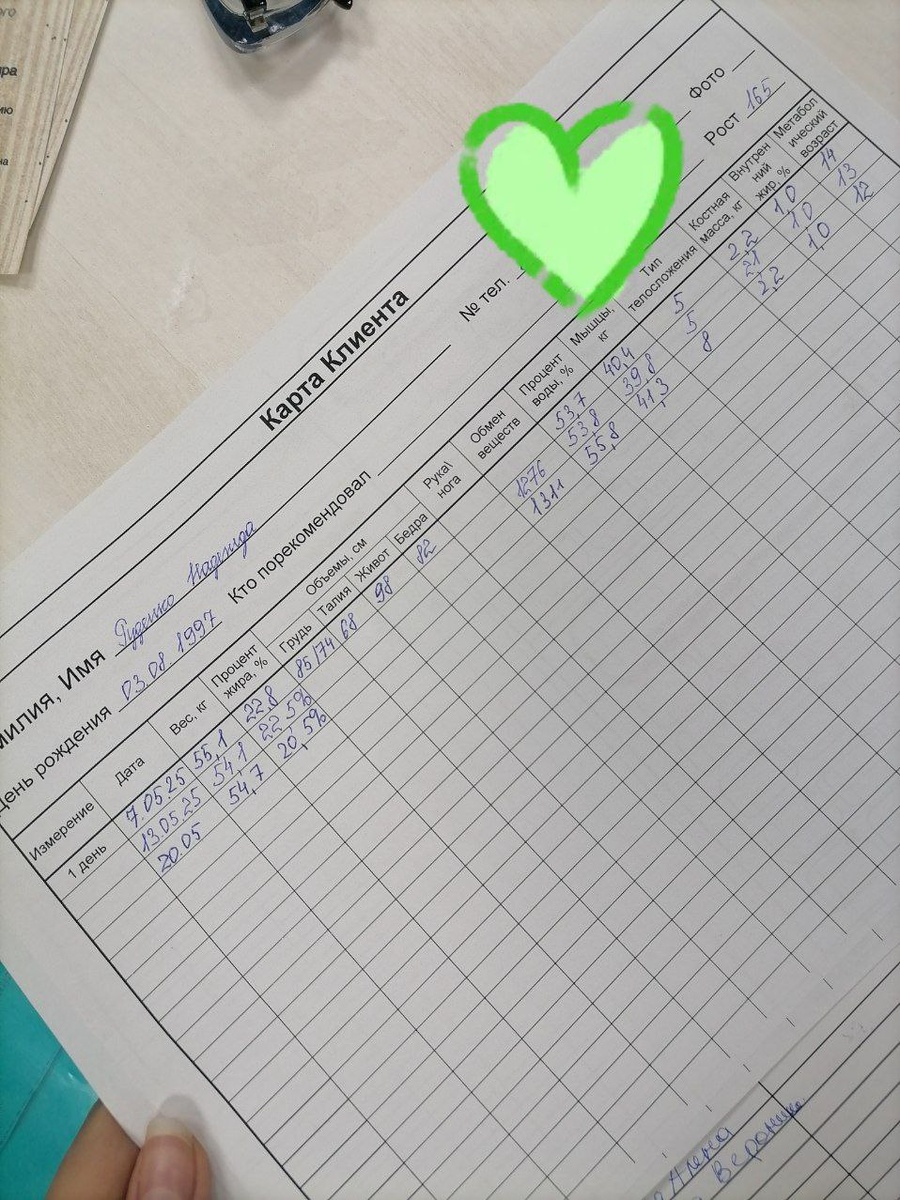 Карта Клиента
Фото
милия, Имя Руденко Надежда № тел.
День рождения 03.08.1997 Кто порекомендовал Рост 165
Измерение Дата Вес, кг Процент жира, % Объемы, см Грудь Талия Живот Бедра Рука\нога Обмен веществ Процент воды, % Мышцы, кг Тип телосложения Костная масса, кг Внутренний жир, % Метаболический возраст
1 день 7.05.25 55,1 22,8 85/74 68 98 82 1276 53,7 40,4 5 2,2 1,0 14
13.05.25 54,1 22,5% 1311 53,8 39,8 5 2,1 1,0 13
20.05 54,7 20,5% 55,8 41,3 8 2,2 1,0 12
Алена
Верони